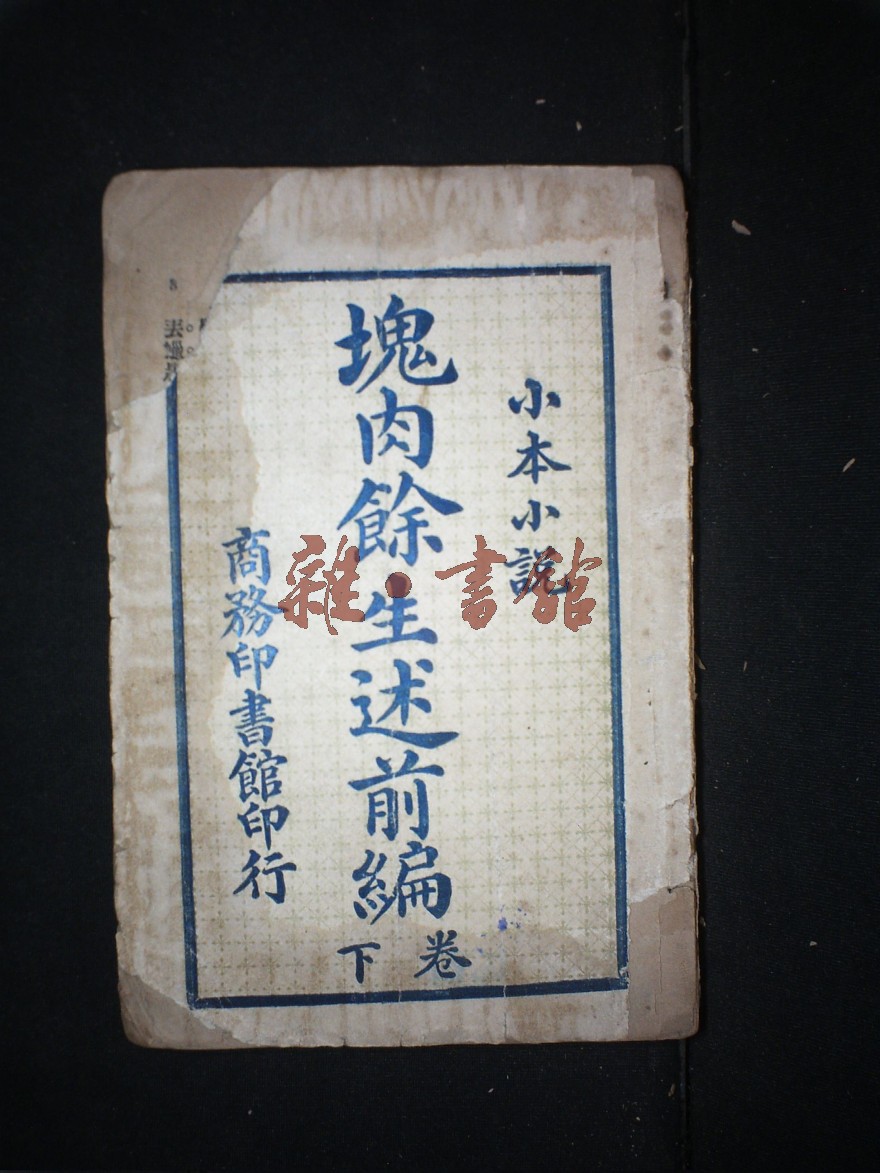 小本小説
塊肉餘生述前編
卷下
商務印書館印行
雜·書館